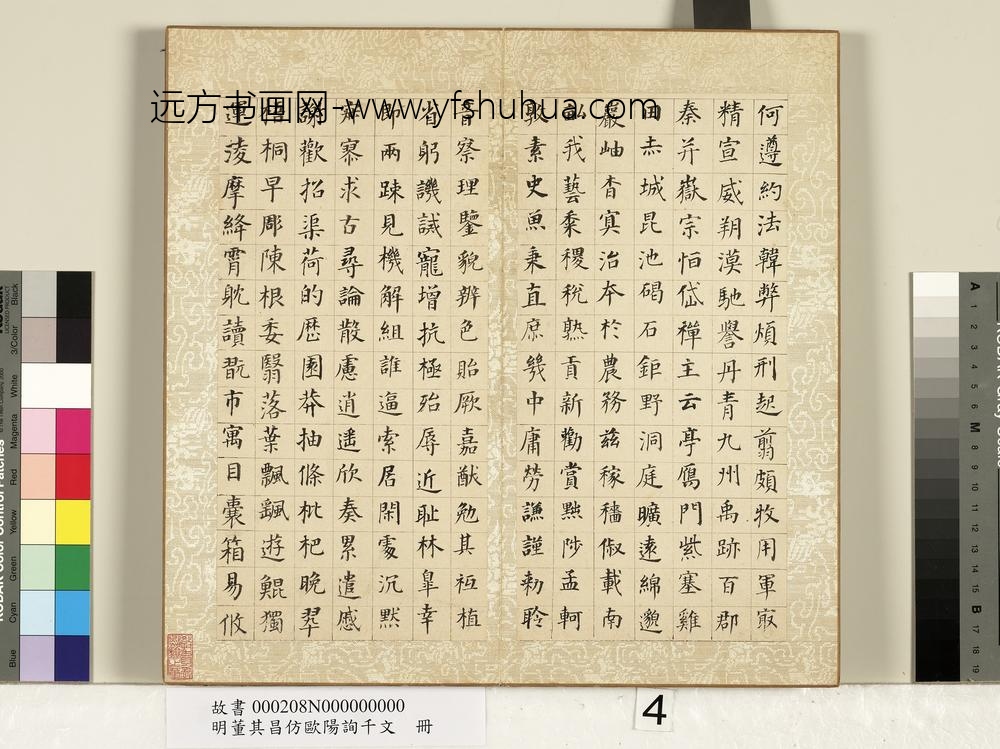 远方书画网-www.yfshuhua.com
何遵約法韓弊煩刑起翦頗牧用軍㝡
精宣威朔漠馳譽丹青九州禹跡百郡
秦并嶽宗恒岱禪主云亭鴈門紫塞雞
田赤城昆池碣石鉅野洞庭曠遠綿邈
巖岫杳冥治本於農務茲稼穡俶載南
畝我藝黍稷稅熟貢新勸賞黜陟孟軻
敦素史魚秉直庶幾中庸勞謙謹勑聆
音察理鑒貌辨色貽厥嘉猷勉其祗植
省躬譏誡寵增抗極殆辱近恥林皐幸
即兩踈見機解組誰逼索居閑處沉默
寂寥求古尋論散慮逍遥欣奏累遣慼
謝歡招渠荷的歷園莽抽條枇杷晚翠
梧桐早彫陳根委翳落葉飄颻遊鯤獨
運凌摩絳霄耽讀翫市寓目囊箱易攸
故書 000208N000000000
明董其昌仿歐陽詢千文 冊
4
KODAK Color Control Patches
LICENSED PRODUCT
Blue Cyan Green Yellow Red Magenta White 3/Color Black
A 1 2 3 4 5 6 M 8 9 10 11 12 13 14 15 B 17 18 19